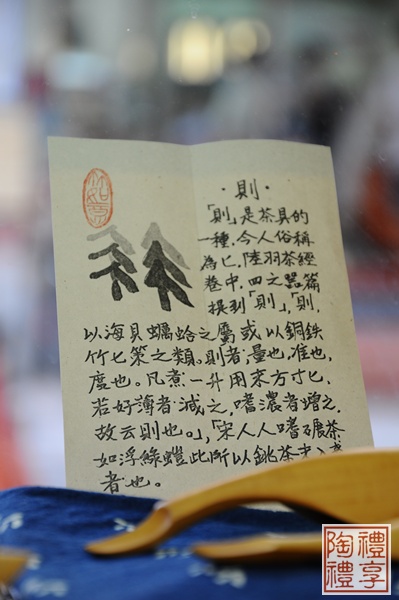 如意
·則·
「則」是茶具的
一種,今人俗稱
為匕,陸羽茶經
卷中,四之器篇
提到「則」,「則,
以海貝蠣蛤之屬或以銅鉄
竹匕策之類。則者,量也,准也,
度也。凡煮一升用末方寸匕,
若好薄者減之,嗜濃者增之,
故云則也。」,「宋人人嗜碾茶
如浮綠螘此所以銚茶末入
者也。
禮享
陶禮